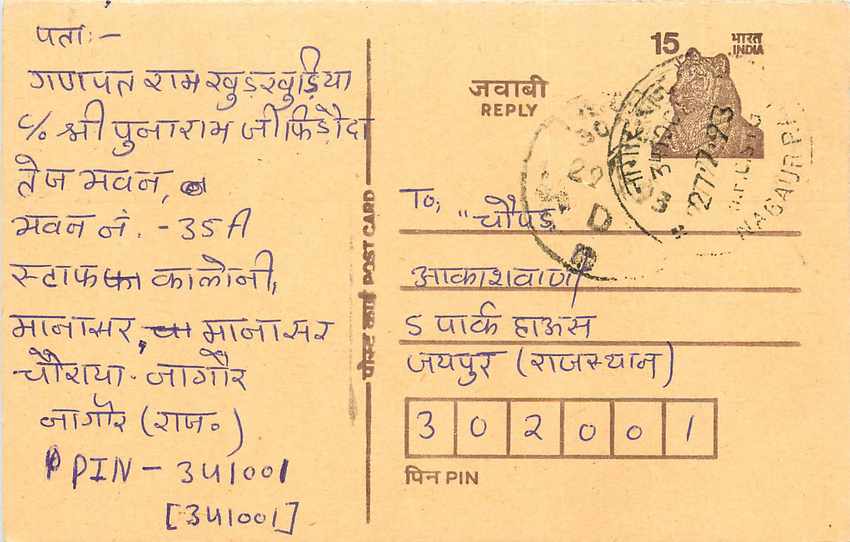 पता:-
गणपत राम खुड़खुड़िया
C/o श्री पुनाराम जी फिड़ौदा
तेज भवन,
भवन नं. - 35 A
स्टाफ कालोनी,
मानासर, मानासर
चौराया - नागौर
नागौर (राज.)
PIN - 341001
[341001]
पोस्ट कार्ड POST CARD
जवाबी
REPLY
15
भारत
INDIA
NAGAUR
To,
"चौपड़"
आकाशवाणी
5 पार्क हाऊस
जयपुर (राजस्थान)
302001
पिन PIN